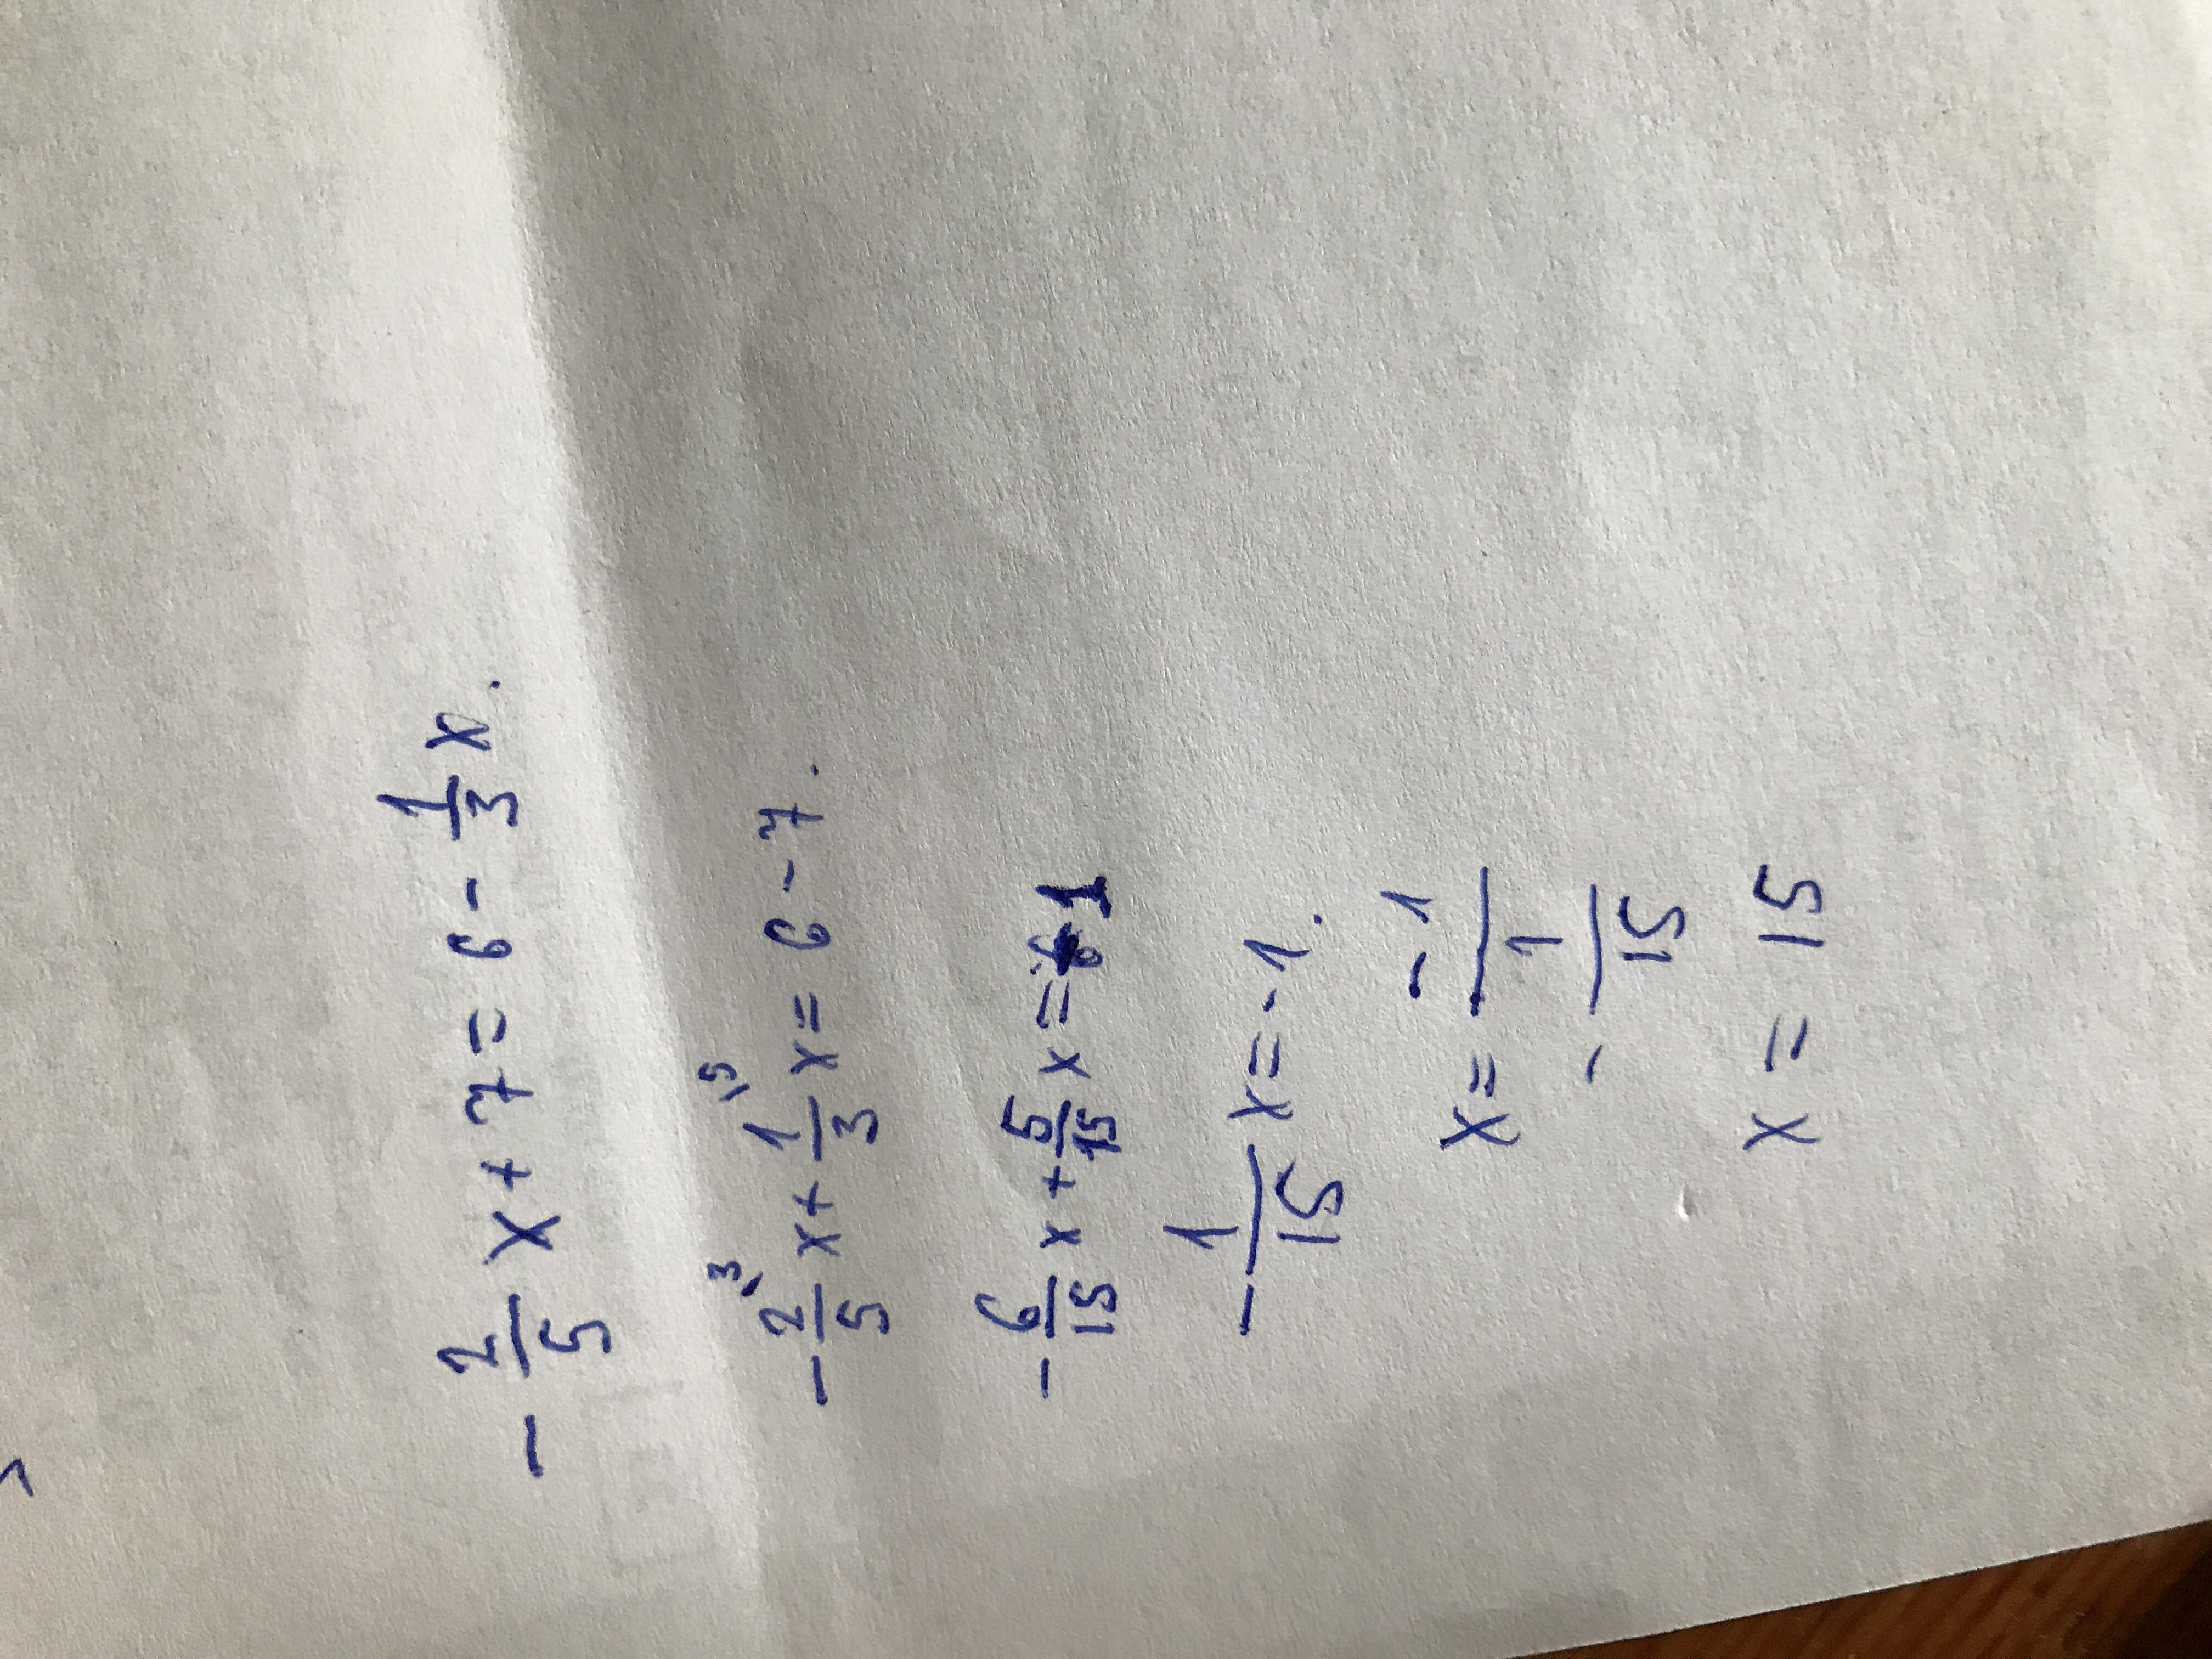 -2/5 x + 7 = 6 - 1/3 x.
-2/5 ³ x + 1/3 ¹⁵ x = 6 - 7.
-6/15 x + 5/15 x = 1
-1/15 x = -1.
x = -1 / -1/15
x = 15